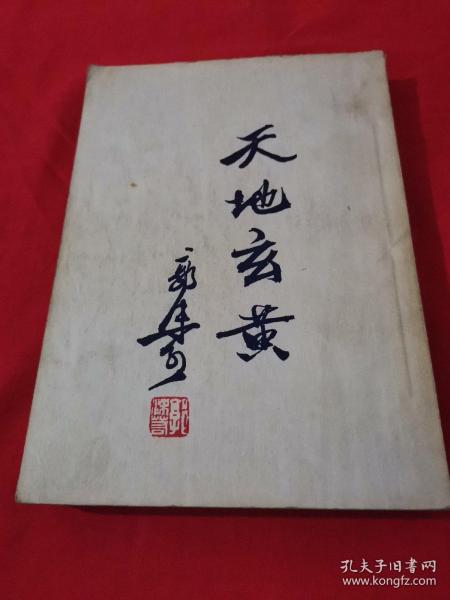 天地玄黄
郭沫若
郭沫若
孔夫子旧书网
www.kongfz.com